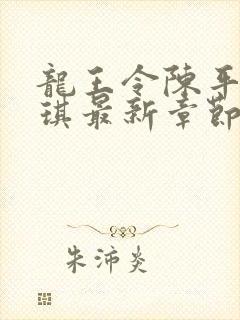 龍王令陳平
琪最新章節
朱沛炎